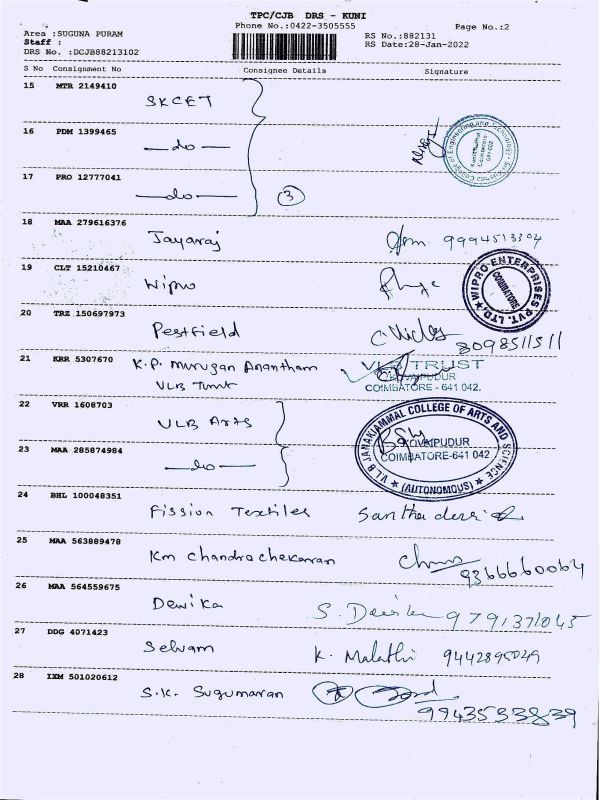 TPC/CJB DRS - KUNI
Phone No.:0422-3505555
Page No.:2
Area :SUGUNA PURAM
Staff :
DRS No. :DCJB88213102
RS No.:882131
RS Date:28-Jan-2022
S No Consignment No Consignee Details Signature
15 MTR 2149410
SKCET
16 PDM 1399465
—do—
17 PRO 12777041
—do— 3
18 MAA 279616376
Jayaraj 9994513304
19 CLT 15210467
Wipro
WIPRO ENTERPRISES PVT. LTD. COIMBATORE
20 TRZ 150697973
Pestfield
8098511511
21 KRR 5307670
K.P. Murugan Anantham
VLB Trust
VLB TRUST
KOVAIPUDUR
COIMBATORE - 641 042.
22 VRR 1608703
VLB Arts
23 MAA 285874984
—do—
VLB JANAKIAMMAL COLLEGE OF ARTS AND SCIENCE
KOVAIPUDUR
COIMBATORE-641 042
(AUTONOMOUS)
24 BHL 100048351
Fission Textiles Santha devi
25 MAA 563889478
Km Chandrachekaran
9366660064
26 MAA 564559675
Dewika S. Devika 9791371045
27 DDG 4071423
Selvam K. Malathi 9442895029
28 IXM 501020612
S.K. Sugumaran
9943533839